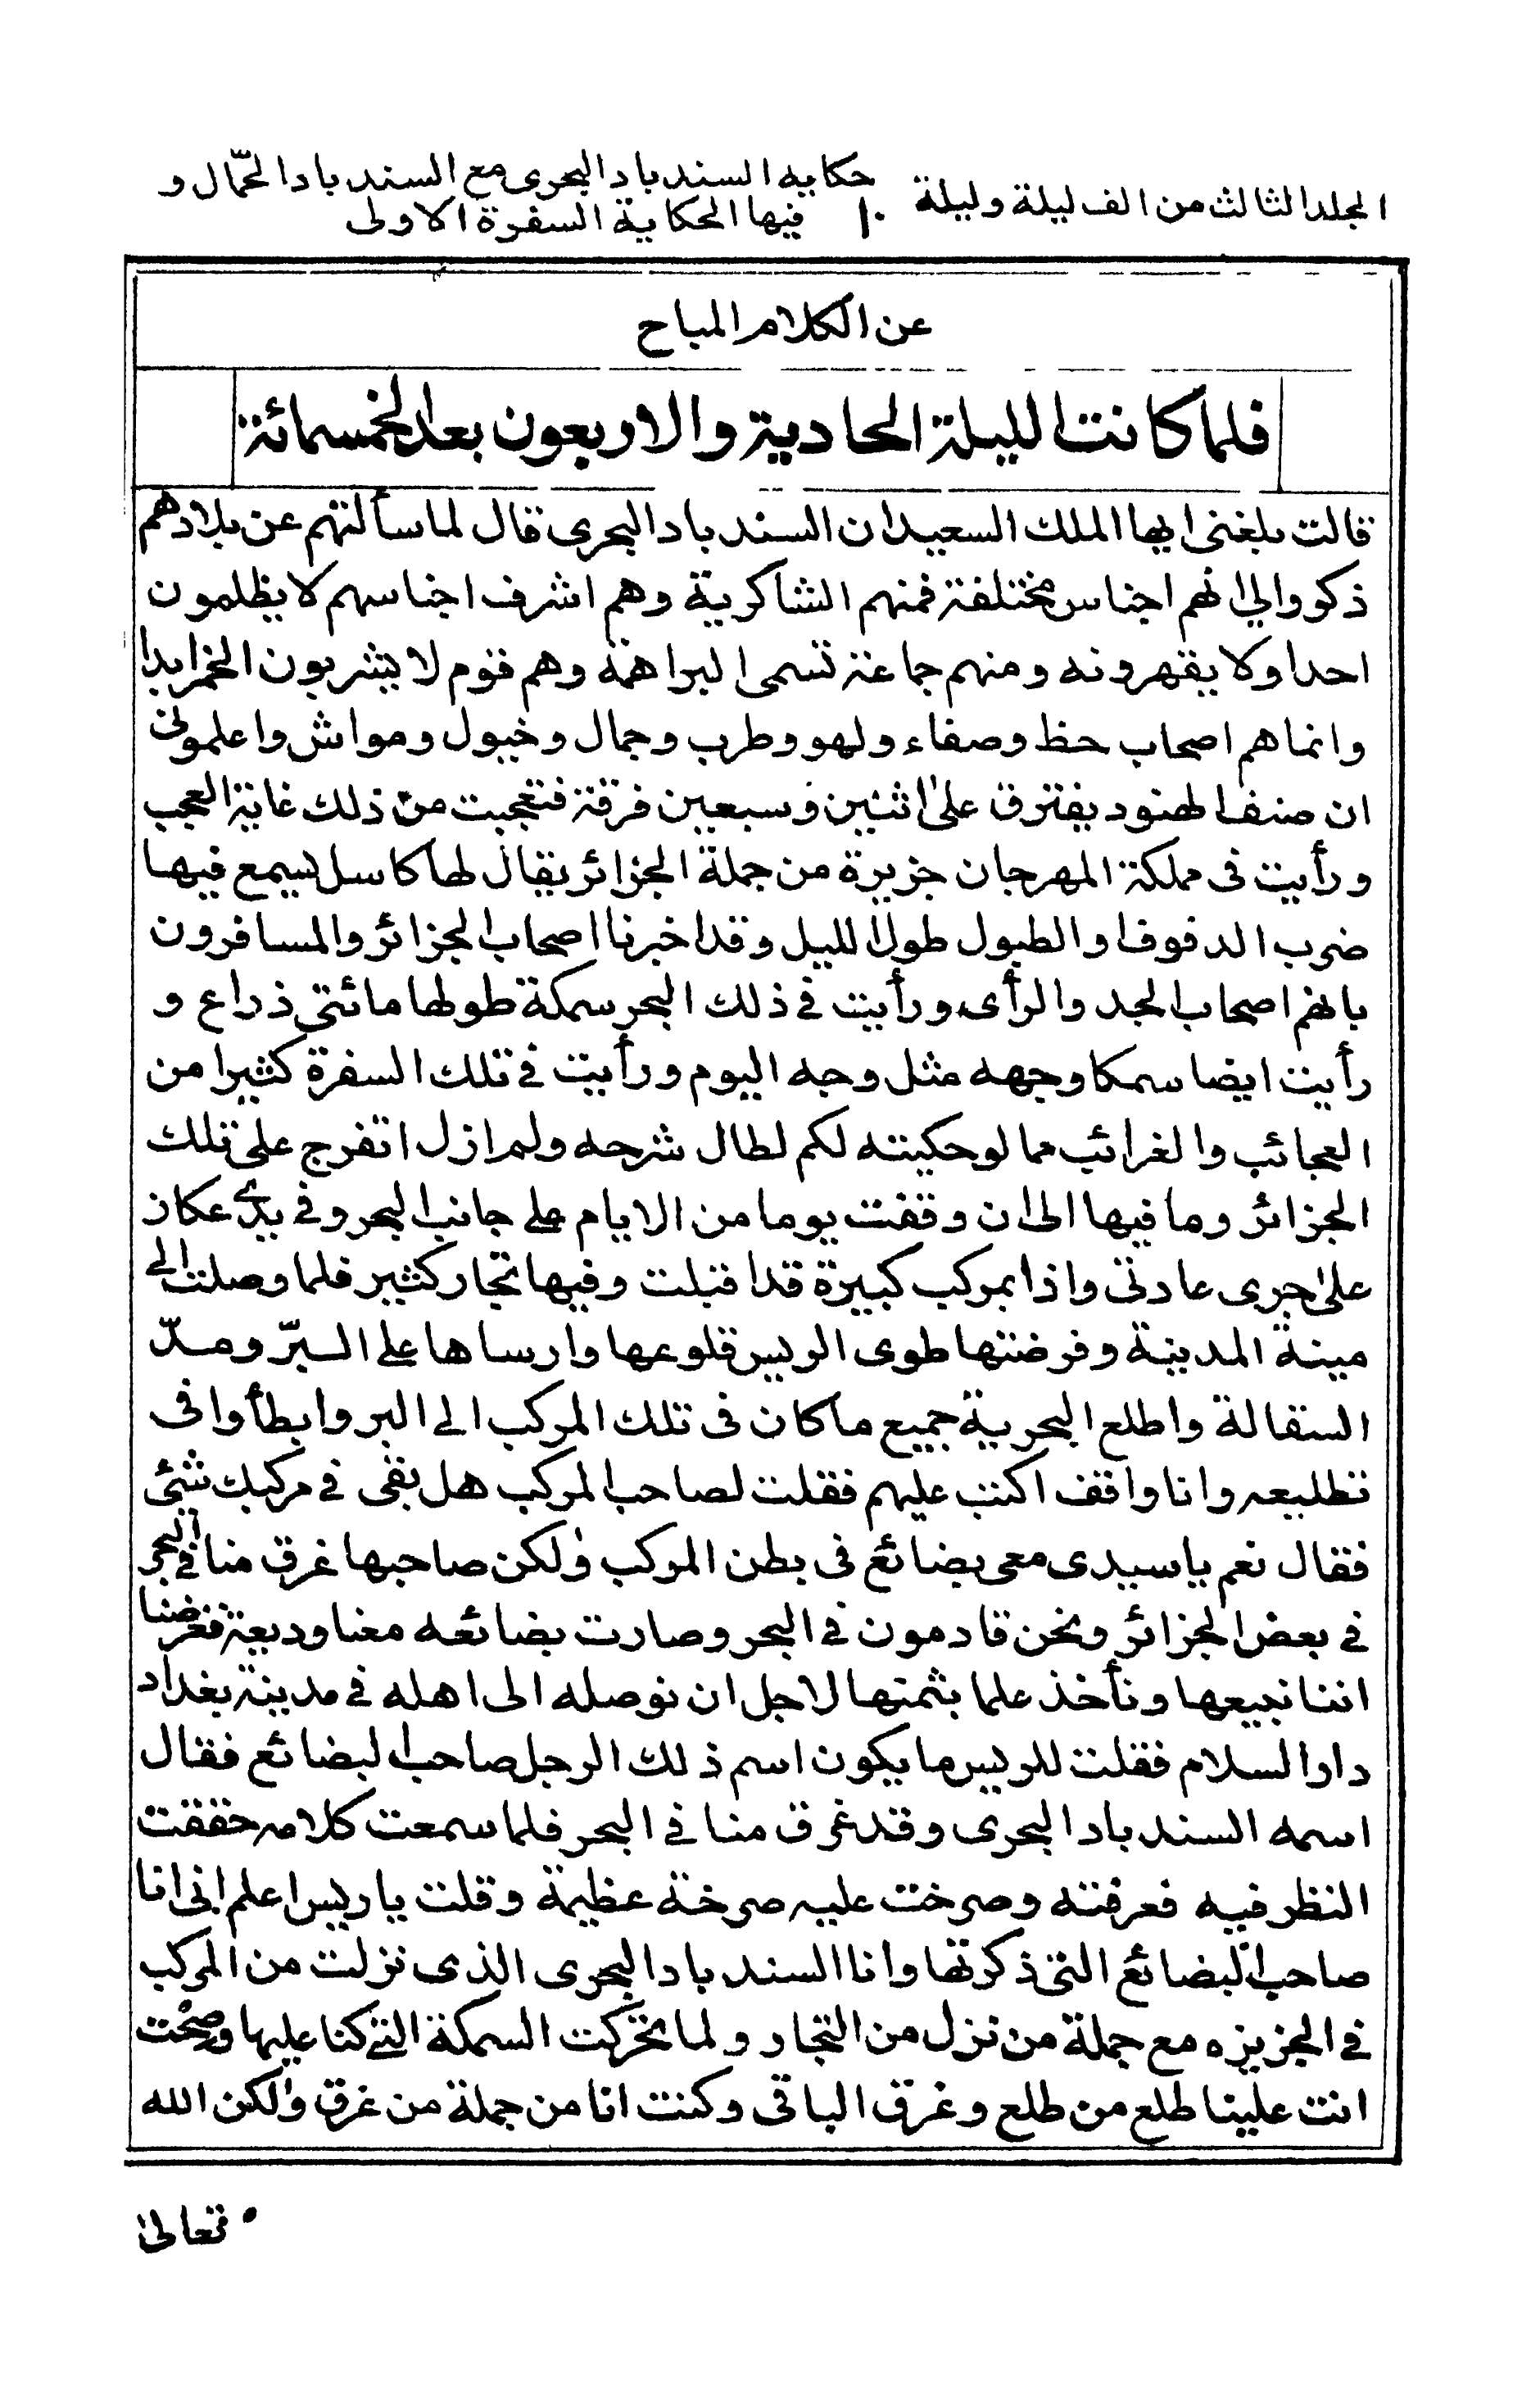 المجلد الثالث من الف ليلة وليلة ١٠ حكاية السندباد البحرى مع السندباد الحمّال و
فيها الحكاية السفرة الاولى
عن الكلام المباح
فلما كانت الليلة الحادية والاربعون بعد الخمسمائة
قالت بلغنى ايها الملك السعيد ان السندباد البحرى قال لما سألتهم عن بلادهم
ذكروا لي انهم اجناس مختلفة فمنهم الشاكرية وهم اشرف اجناسهم لا يظلمون
احدا ولا يقهرونه ومنهم جماعة تسمى البراهمة وهم قوم لا يشربون الخمر ابدا
وانما هم اصحاب حظ وصفاء ولهو وطرب وجمال وخيول ومواش واعلمونى
ان صنف الهنود يفترق على اثنين وسبعين فرقة فتعجبت من ذلك غاية العجب
ورأيت فى مملكة المهرجان جزيرة من جملة الجزائر يقال لها كاسل يسمع فيها
ضرب الدفوف والطبول طول الليل وقد اخبرنا اصحاب الجزائر والمسافرون
بانهم اصحاب الجد والرأى ورأيت في ذلك البحر سمكة طولها مائتى ذراع و
رأيت ايضا سمكا وجهه مثل وجه اليوم ورأيت في تلك السفرة كثيرا من
العجائب والغرائب مما لو حكيته لكم لطال شرحه ولم ازل اتفرج على تلك
الجزائر وما فيها الى ان وقفت يوما من الايام على جانب البحر وفي يدي عكاز
على جرى عادتى واذا بمركب كبيرة قد اقبلت وفيها تجار كثير فلما وصلت الى
مينة المدينة وفرضتها طوى الريس قلوعها وارساها على البرّ ومدّ
السقالة واطلع البحرية جميع ما كان فى تلك المركب الى البر وابطأوا فى
تطليعه وانا واقف اكتب عليهم فقلت لصاحب المركب هل بقى في مركبك شئ
فقال نعم ياسيدى معى بضائع فى بطن المركب ولكن صاحبها غرق منا في البحر
في بعض الجزائر ونحن قادمون في البحر وصارت بضائعه معنا وديعة فغرضنا
اننا نبيعها ونأخذ علما بثمنها لاجل ان نوصله الى اهله في مدينة بغداد
دار السلام فقلت للريس ما يكون اسم ذلك الرجل صاحب البضائع فقال
اسمه السندباد البحرى وقد غرق منا في البحر فلما سمعت كلامه حققت
النظر فيه فعرفته وصرخت عليه صرخة عظيمة وقلت ياريس اعلم انى انا
صاحب البضائع التى ذكرتها وانا السندباد البحرى الذى نزلت من المركب
في الجزيره مع جملة من نزل من التجار ولما تحركت السمكة التى كنا عليها وصحت
انت علينا طلع من طلع وغرق الباقى وكنت انا من جملة من غرق ولكن الله
تعالى